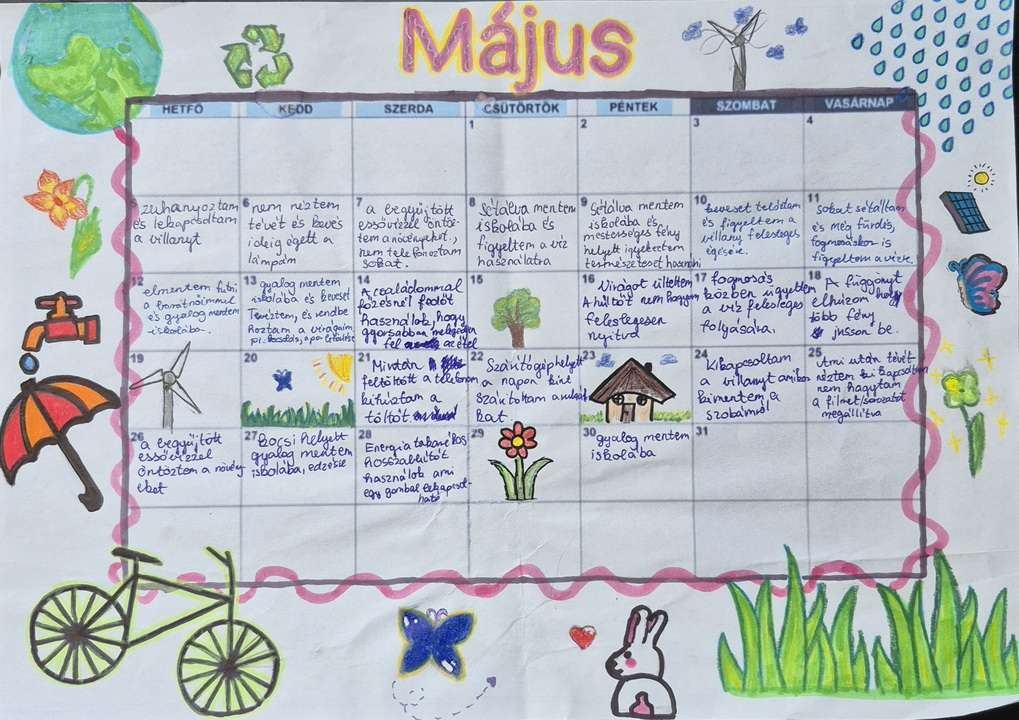 Május
HÉTFŐ KEDD SZERDA CSÜTÖRTÖK PÉNTEK SZOMBAT VASÁRNAP
1 2 3 4
zuhanyoztam
és lekapcsoltam
a villanyt
6 nem néztem
tévét és kevés
ideig égett a
lámpám
7 a begyűjtött
esővízzel öntöz-
tem a növényeket,
nem telefonoztam
sokat.
8 Sétálva mentem
iskolába és
figyeltem a víz
használatra
9 Sétálva mentem
iskolába és,
mesterséges fény
helyett igyekeztem
természeteset használni
10 keveset teldztam
és figyeltem a
villany felesleges
égésére.
11 sokat sétáltam
és még fürdés,
fogmosáskor is
figyeltem a vízre.
12 elmentem futni
a barátnőimmel
és gyalog mentem
iskolába.
13 gyalog mentem
iskolába és keveset
Tévéztem, és rendbe
hoztam a virágaim
pl.
14 A családommal
főzésnél fedőt
használok, hogy
gyorsabban melegedjen
fel az étel
15
16 Virágot ültettem
A hűtőt nem hagyom
feleslegesen
nyitva
17 fogmosás
közben ügyeltem
a víz felesleges
folyására.
18 A függönyt
elhúzom hogy
több fény
jusson be.
19
20
21 Miután
feltöltött a telefonom
kihúztam a
töltőt
22 Szárítógép helyett
a napon kint
Szárítottam a ruhákat
23
24 Kikapcsoltam
a villanyt amikor
kimentem a
szobámból
25 Ami után tévét
néztem ki kapcsoltam
nem hagytam
a filmet/sorozatot
megállítva
26 a begyűjtött
esővízzel
öntöztem a növény-
eket
27 Kocsi helyett
gyalog mentem
iskolába, edzésre
28 Energia takarékos
hosszabbítót
használok ami
egy gombal lekapcsol-
ható
29
30 gyalog mentem
iskolába
31